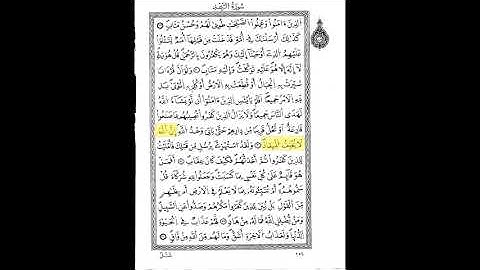 سُورَةُ الرَّعْدِ
الَّذِينَ ءَامَنُوا وَعَمِلُوا الصَّٰلِحَٰتِ طُوبَىٰ لَهُمْ وَحُسْنُ مَـَٔابٍ
كَذَٰلِكَ أَرْسَلْنَٰكَ فِي أُمَّةٍ قَدْ خَلَتْ مِن قَبْلِهَا أُمَمٌ لِّتَتْلُوَا
عَلَيْهِمُ الَّذِي أَوْحَيْنَا إِلَيْكَ وَهُمْ يَكْفُرُونَ بِالرَّحْمَٰنِ قُلْ هُوَ رَبِّي
لَا إِلَٰهَ إِلَّا هُوَ عَلَيْهِ تَوَكَّلْتُ وَإِلَيْهِ مَتَابِ وَلَوْ أَنَّ قُرْءَانًا
سُيِّرَتْ بِهِ الْجِبَالُ أَوْ قُطِّعَتْ بِهِ الْأَرْضُ أَوْ كُلِّمَ بِهِ الْمَوْتَىٰ بَل
لِّلَّهِ الْأَمْرُ جَمِيعًا أَفَلَمْ يَا۟يْـَٔسِ الَّذِينَ ءَامَنُوا أَن لَّوْ يَشَاءُ اللَّهُ
لَهَدَى النَّاسَ جَمِيعًا وَلَا يَزَالُ الَّذِينَ كَفَرُوا تُصِيبُهُم بِمَا صَنَعُوا
قَارِعَةٌ أَوْ تَحُلُّ قَرِيبًا مِّن دَارِهِمْ حَتَّىٰ يَأْتِيَ وَعْدُ اللَّهِ إِنَّ اللَّهَ
لَا يُخْلِفُ الْمِيعَادَ وَلَقَدِ اسْتُهْزِئَ بِرُسُلٍ مِّن قَبْلِكَ فَأَمْلَيْتُ
لِلَّذِينَ كَفَرُوا ثُمَّ أَخَذْتُهُمْ فَكَيْفَ كَانَ عِقَابِ أَفَمَنْ
هُوَ قَائِمٌ عَلَىٰ كُلِّ نَفْسٍ بِمَا كَسَبَتْ وَجَعَلُوا لِلَّهِ شُرَكَاءَ قُلْ
سَمُّوهُمْ أَمْ تُنَبِّـُٔونَهُ بِمَا لَا يَعْلَمُ فِي الْأَرْضِ أَم بِظَٰهِرٍ
مِّنَ الْقَوْلِ بَلْ زُيِّنَ لِلَّذِينَ كَفَرُوا مَكْرُهُمْ وَصُدُّوا عَنِ السَّبِيلِ
وَمَن يُضْلِلِ اللَّهُ فَمَا لَهُ مِنْ هَادٍ لَّهُمْ عَذَابٌ فِي الْحَيَوٰةِ
الدُّنْيَا وَلَعَذَابُ الْآخِرَةِ أَشَقُّ وَمَا لَهُم مِّنَ اللَّهِ مِن وَاقٍ